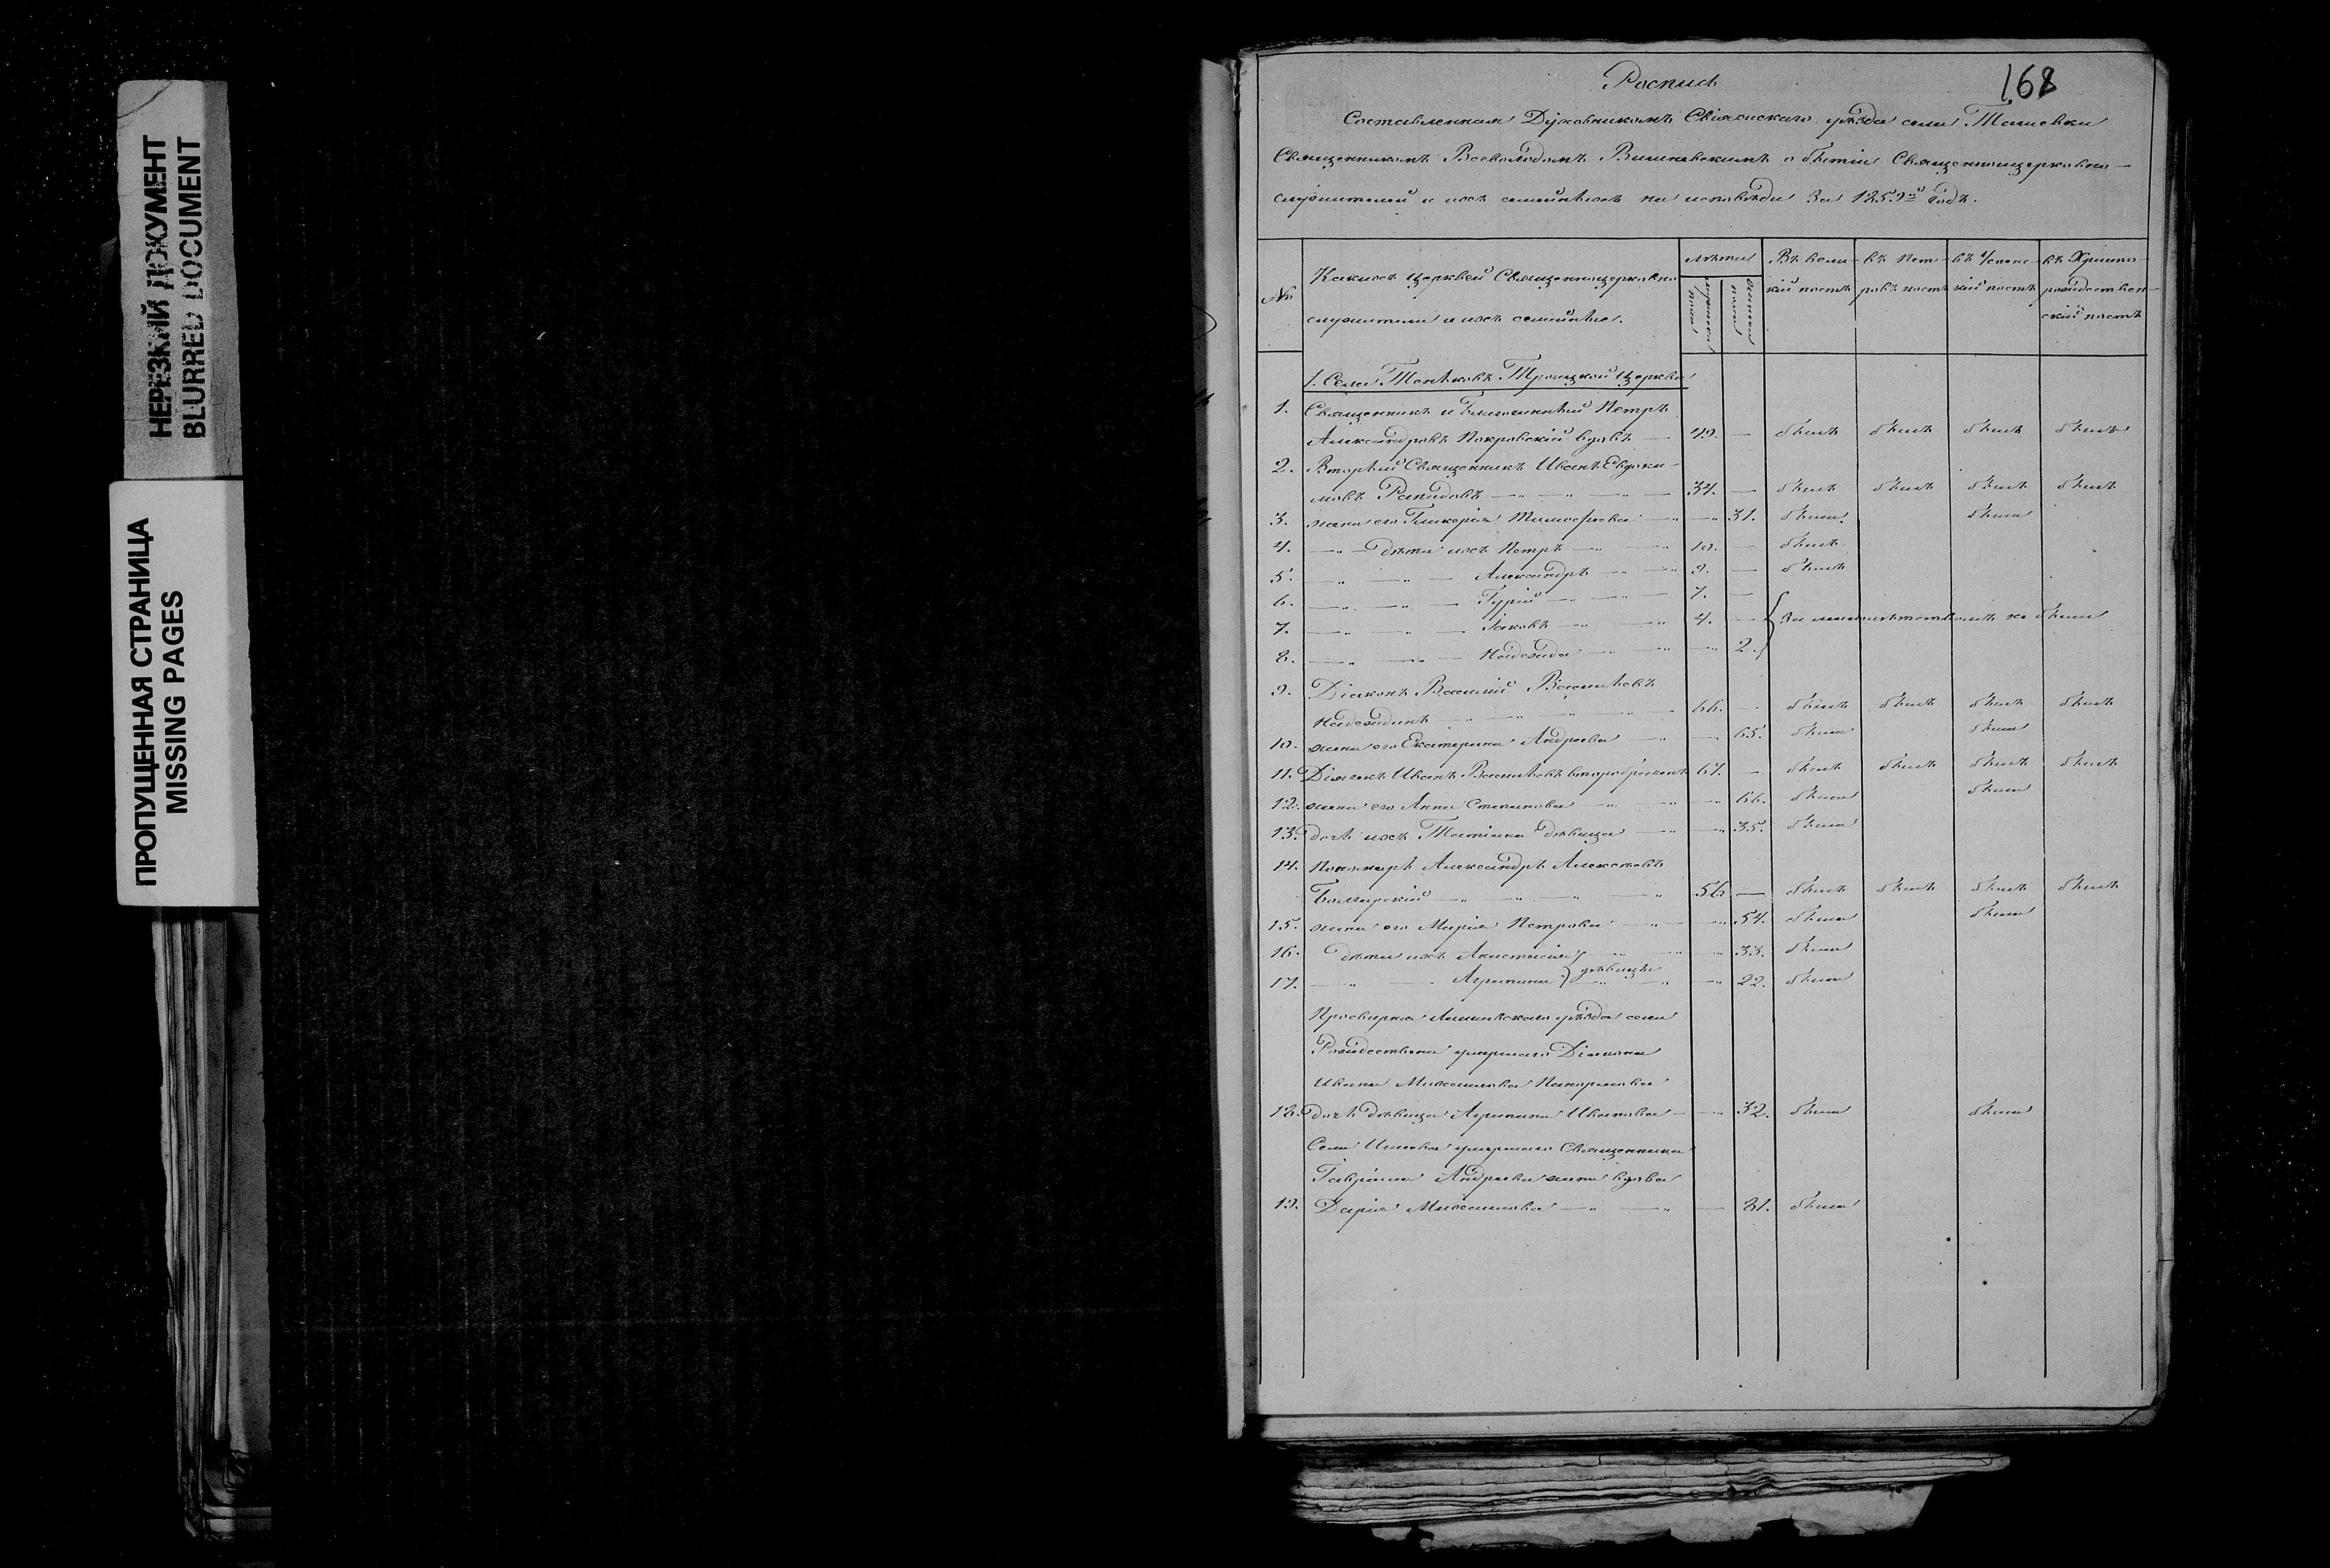 НЕРЕЗКИЙ ДОКУМЕНТ
BLURRED DOCUMENT
ПРОПУЩЕННАЯ СТРАНИЦА
MISSING PAGES
168
Роспись
Составленная Духовникомъ Свіяжскаго уѣзда села Ташевки
Священникомъ Всеволодомъ Вишневскимъ о бытіи Священноцерковно-
служителей и ихъ семействъ на исповѣди За 1859й годъ.
№
Какихъ церквей Священноцерковно
служители и ихъ семейства.
Лѣта
мужеска пола
женска пола
Въ вели-
кій постъ
въ Пет-
ровъ постъ
въ Успен-
скій постъ
въ Христо-
рождествен-
скій постъ
1. Села Теньковъ Троицкой Церкви
1. Священникъ и Благочинный Петръ
Александровъ Покровскій вдовъ — 49. — былъ былъ былъ былъ
2. Вторый Священникъ Иванъ Евдоки-
мовъ 34. — былъ былъ былъ былъ
3. жена его Гликерія Тимофеева — 31. была была
4. дѣти ихъ Петръ 10. — былъ
5. Александръ 9. — былъ
6. Гурій 7. —
7. Іаковъ 4. — За малолѣтствомъ не были
8. Надежда 2.
9. Діаконъ Василій Васильевъ
Надеждинъ 66. — былъ былъ былъ былъ
10. жена его Екатерина Андреева — 65. была была
11. Дьячекъ Иванъ Васильевъ второбрачный 67. — былъ былъ былъ былъ
12. жена его Анна Степанова — 66. была была
13. дочь ихъ Татіана дѣвица — 35. была
14. Пономарь Александръ Алексѣевъ
Болгарскій 56 — былъ былъ былъ былъ
15. жена его Марія Петрова — 54. была была
16. Дѣти ихъ Анастасія 33. была
17. Агрипина } дѣвицы 22. была
Просвирня Лаишевскаго уѣзда села
Рождествена умершаго Діакона
Ивана Михаилова
18. дочь дѣвица Агрипина Иванова — 32. была была
Села умершаго Священника
Гавріила Андреева жена вдова
19. Дарія Михаилова — 81. была